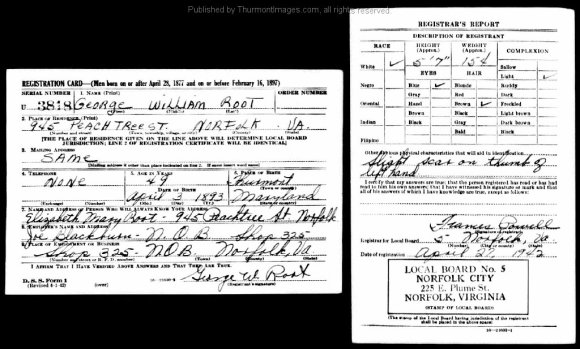 Published by ThurmontImages.com, all rights reserved.
REGISTRATION CARD—(Men born on or after April 28, 1877 and on or before February 16, 1897)
SERIAL NUMBER 1. NAME (Print) ORDER NUMBER
U 3818 GEORGE WILLIAM ROOT
(First) (Middle) (Last)
2. PLACE OF RESIDENCE (Print)
945 PEACH TREE ST. NORFOLK VA.
[THE PLACE OF RESIDENCE GIVEN ON THE LINE ABOVE WILL DETERMINE LOCAL BOARD
JURISDICTION; LINE 2 OF REGISTRATION CERTIFICATE WILL BE IDENTICAL]
3. MAILING ADDRESS
SAME
[Mailing address if other than place indicated on line 2. If same insert word same]
4. TELEPHONE 5. AGE IN YEARS 6. PLACE OF BIRTH
NONE 49 Thurmont
DATE OF BIRTH
April 3 1893 Maryland
(Exchange) (Number) (Mo.) (Day) (Yr.) (State or country)
7. NAME AND ADDRESS OF PERSON WHO WILL ALWAYS KNOW YOUR ADDRESS
Elizabeth Mary Root - 945 Peachtree St Norfolk
8. EMPLOYER'S NAME AND ADDRESS
Joe Blackburn - N.O.B. Shop 325
9. PLACE OF EMPLOYMENT OR BUSINESS
Shop 325 - N.O.B. Norfolk, Va
(Number and street or R. F. D. number) (Town) (County) (State)
I AFFIRM THAT I HAVE VERIFIED ABOVE ANSWERS AND THAT THEY ARE TRUE.
George W. Root
D. S. S. Form 1
(Revised 4-1-42) (over) (Registrant's signature)
REGISTRAR'S REPORT
DESCRIPTION OF REGISTRANT
RACE HEIGHT (Approx.) WEIGHT (Approx.) COMPLEXION
White ✓ 5' 7" 154 Sallow
EYES HAIR Light ✓
Negro Blue ✓ Blonde Ruddy
Gray Red Dark
Oriental Hazel Brown ✓ Freckled
Brown Black Light brown
Indian Black Gray Dark brown
Bald Black
Filipino
Other obvious physical characteristics that will aid in identification
Slight scar on thumb of
left hand
I certify that my answers are true; that the person registered has read or has had
read to him his own answers; that I have witnessed his signature or mark and that
all of his answers of which I have knowledge are true, except as follows:
Registrar for Local Board 5 Norfolk, Va
(Number) (City or county) (State)
Date of registration April 27, 1942
LOCAL BOARD No. 5
NORFOLK CITY
225 E. Plume St.
NORFOLK, VIRGINIA
(STAMP OF LOCAL BOARD)
(The stamp of the Local Board having jurisdiction of the registrant
shall be placed in the above space)